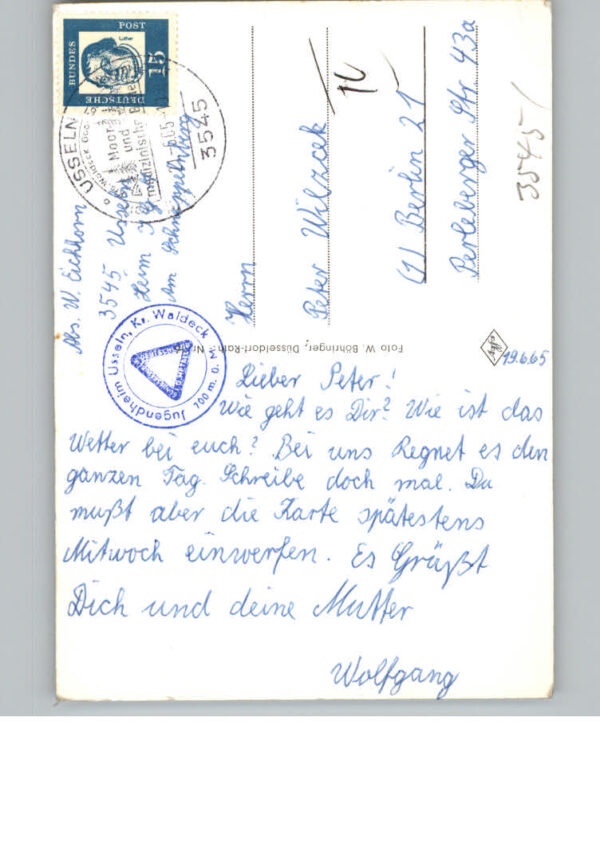 DEUTSCHE
BUNDES
POST
Luther
15
USSELN
Moor
und
3545
Abs. W. Eichhorn
3545 Usseln
Heim
Am
Herrn
Peter Wilzcek
(1) Berlin 21
Perleberger Str 43a
3545
Jugendheim Usseln, Kr. Waldeck
700 m. ü. M.
Foto W. Böhringer, Düsseldorf-Rath
19.6.65
Lieber Peter!
Wie geht es Dir? Wie ist das
Wetter bei euch? Bei uns Regnet es den
ganzen Tag. Schreibe doch mal. Du
mußt aber die Karte spätestens
Mitwoch einwerfen. Es Grüßt
Dich und deine Mutter
Wolfgang